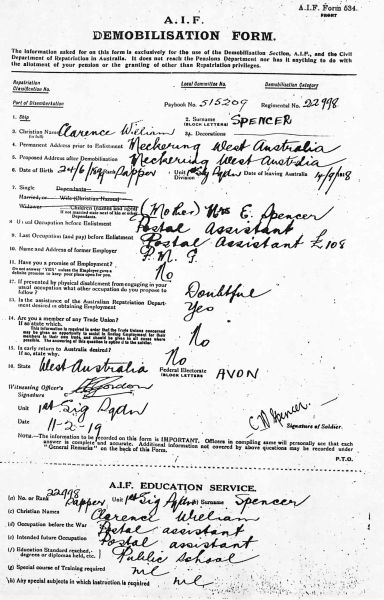 A.I.F. Form 534.
FRONT
A.I.F.
DEMOBILISATION FORM.
The information asked for on this form is exclusively for the use of the Demobilisation Section, A.I.F., and the Civil
Department of Repatriation in Australia. It does not reach the Pensions Department nor has it anything to do with
the allotment of your pension or the granting of other than Repatriation privileges.
Repatriation Classification No. Local Committee No. Demobilisation Category
Port of Disembarkation Paybook No. 515209 Regimental No. 22998
1. Ship 2. Surname (BLOCK LETTERS) SPENCER
3. Christian Names (in full) Clarence William 3A. Decorations
4. Permanent Address prior to Enlistment Meckering West Australia
5. Proposed Address after Demobilisation Meckering West Australia
6. Date of Birth 24/6/89 Rank Sapper Unit Division 1st Sig Sqdn Date of leaving Australia 4/9/18
7. Single Dependants
Married, or Wife (Christian Name)
Widower Children (names and ages)
If not married state next of kin or other Dependants (Mother) Mrs E. Spencer
8. Usual Occupation before Enlistment Postal Assistant
9. Last Occupation (and Pay) before Enlistment Postal Assistant £108
10. Name and Address of former Employer P.M.G.
11. Have you a promise of Employment? No
Do not answer "YES" unless the Employer gave a
definite promise to keep your place open for you.
12. If prevented by physical disablement from engaging in your
usual occupation what other occupation do you propose to
follow? Doubtful
13. Is the assistance of the Australian Repatriation Depart-
ment desired in obtaining Employment? Yes
14. Are you a member of any Trade Union?
If so state which. No
This information is required in order that the Trade Unions concerned
may be given an opportunity to assist in finding Employment for their
members in their own trade, and should be given in all cases where
possible. The answering of this question is optional to the soldier.
15. Is early return to Australia desired?
If so, state why. No
16. State West Australia Federal Electorate (BLOCK LETTERS) AVON
Witnessing Officer's Signature
Unit 1st Sig Sqdn
Date 11-2-19
C W Spencer. Signature of Soldier.
NOTE.—The information to be recorded on this form is IMPORTANT. Officers in compiling same will personally see that each
answer is complete and accurate. Additional information not covered by above questions may be recorded under
"General Remarks" on the back of this Form.
P.T.O.
A.I.F. EDUCATION SERVICE.
(a) No. or Rank 22998 Sapper Unit 1st Sig Sqdn (b) Surname Spencer
(c) Christian Names Clarence William
(d) Occupation before the War Postal assistant
(e) Intended future Occupation Postal assistant
(f) Education Standard reached,
degrees or diplomas held, etc. Public School
(g) Special course of Training required nil
(h) Any special subjects in which instruction is required nil